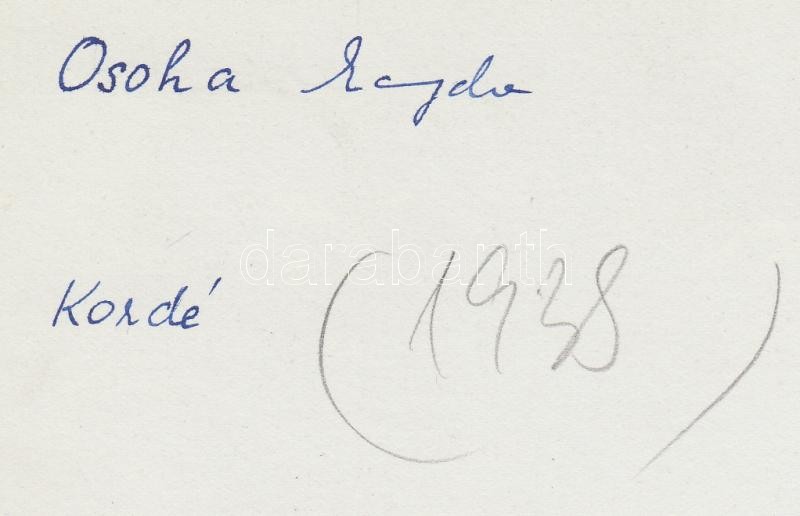 Osoha
darabanth
Kordé (1938)